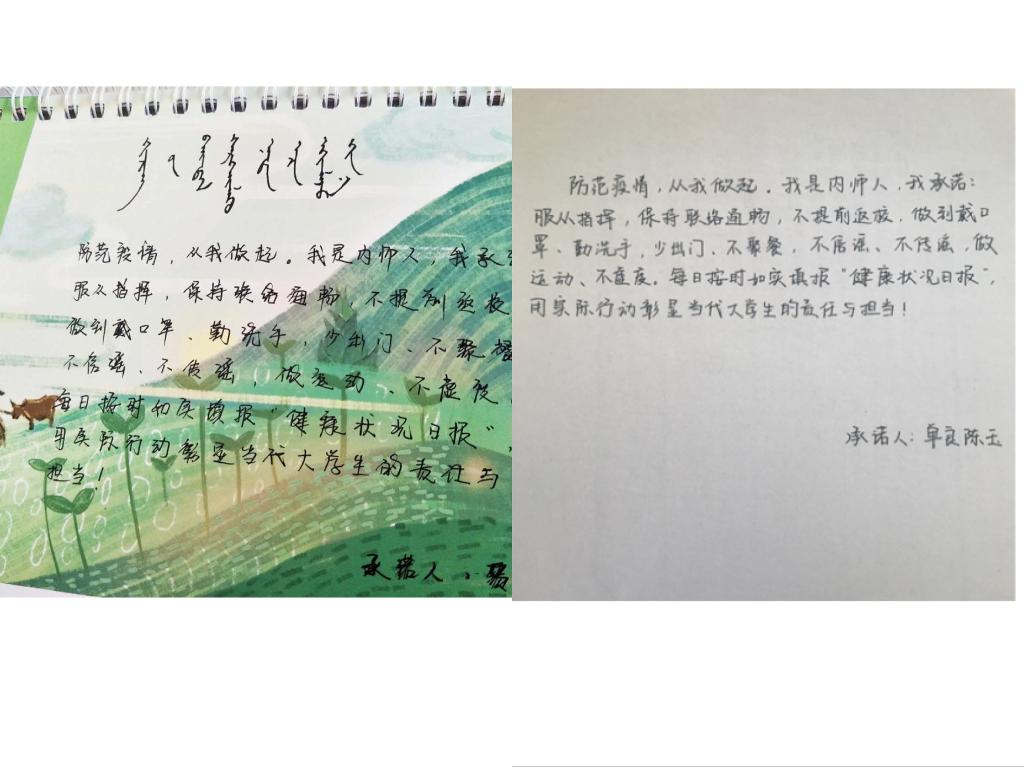 防范疫情，从我做起。我是内师人，我承
服从指挥，保持联络通畅，不提前返校
做到戴口罩、勤洗手，少出门、不聚餐
不信谣、不传谣，做运动、不虚度
每日按时如实填报“健康状况日报”，
用实际行动彰显当代大学生的责任与
担当！
承诺人：
防范疫情，从我做起。我是内师人，我承诺：
服从指挥，保持联络通畅，不提前返校，做到戴口
罩、勤洗手，少出门、不聚餐，不信谣、不传谣，做
运动、不虚度。每日按时如实填报“健康状况日报”，
用实际行动彰显当代大学生的责任与担当！
承诺人：卓良陈玉